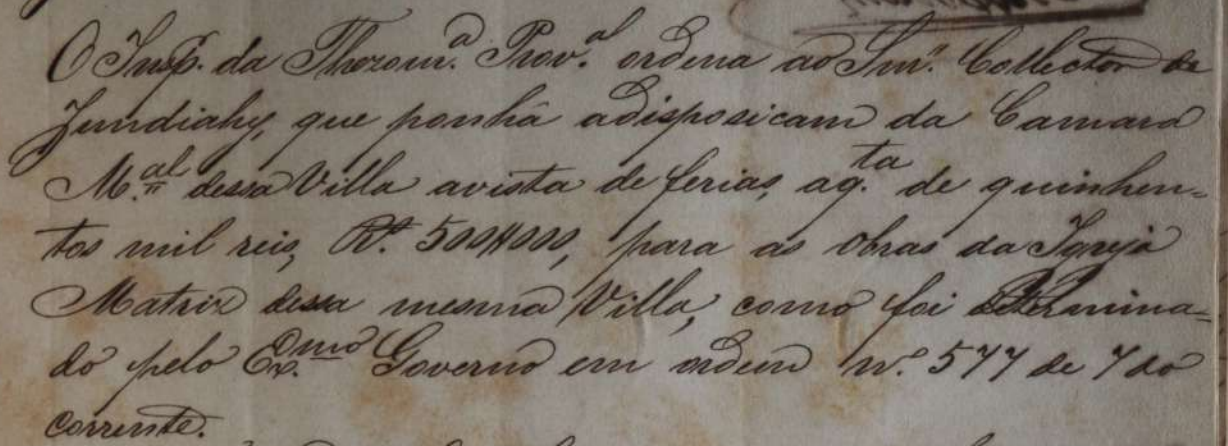 O Insp. da Thezour.ª Prov.al ordena ao Snr. Collector de
Jundiahy, que ponha adisposicam da Camara
M.al dessa Villa avista de ferias, aq.ta de quinhen-
tos mil reis, R.s 500$000, para as obras da Igreja
Matriz dessa mesma Villa, como foi determina-
do pelo Ex.mo Governo em ordem n.º 577 de 7 do
corrente.